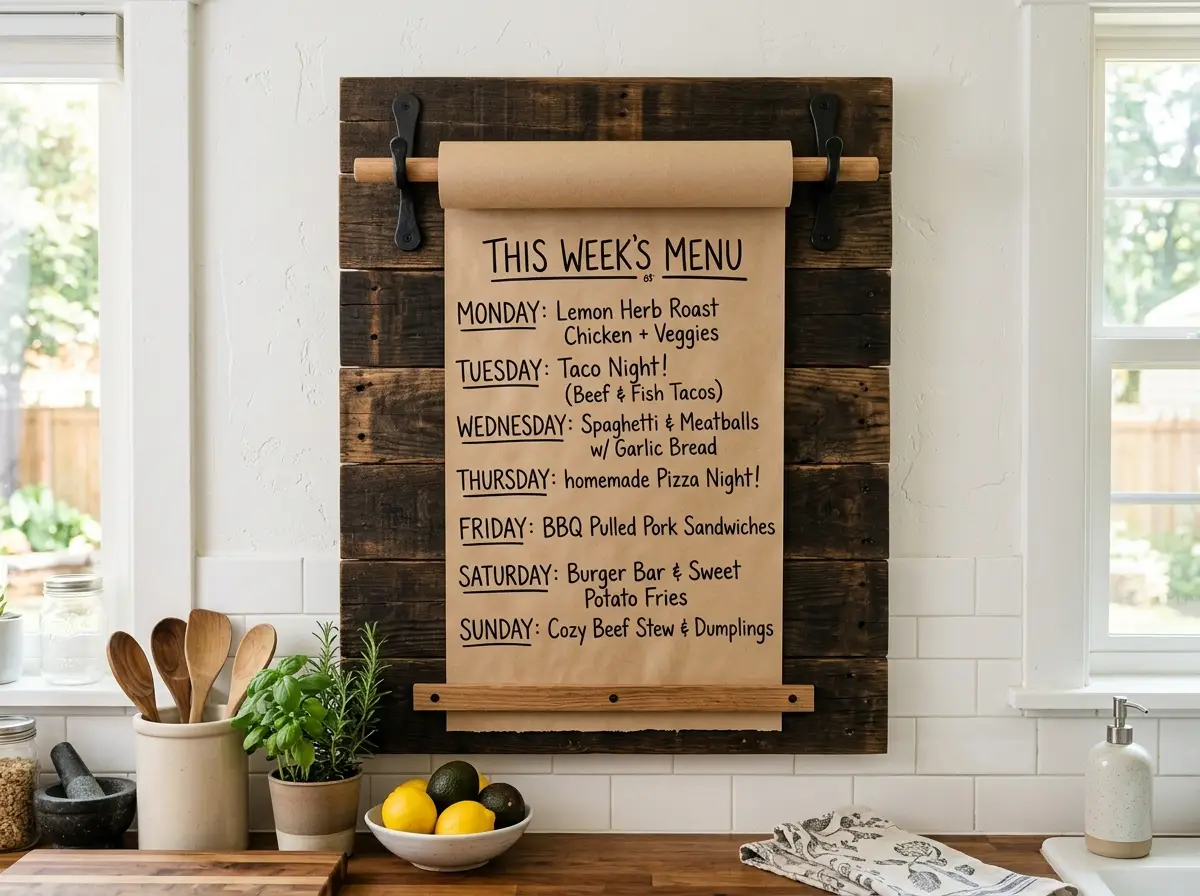 THIS WEEK'S MENU
MONDAY: Lemon Herb Roast
Chicken + Veggies
TUESDAY: Taco Night!
(Beef & Fish Tacos)
WEDNESDAY: Spaghetti & Meatballs
w/ Garlic Bread
THURSDAY: homemade Pizza Night!
FRIDAY: BBQ Pulled Pork Sandwiches
SATURDAY: Burger Bar & Sweet
Potato Fries
SUNDAY: Cozy Beef Stew & Dumplings